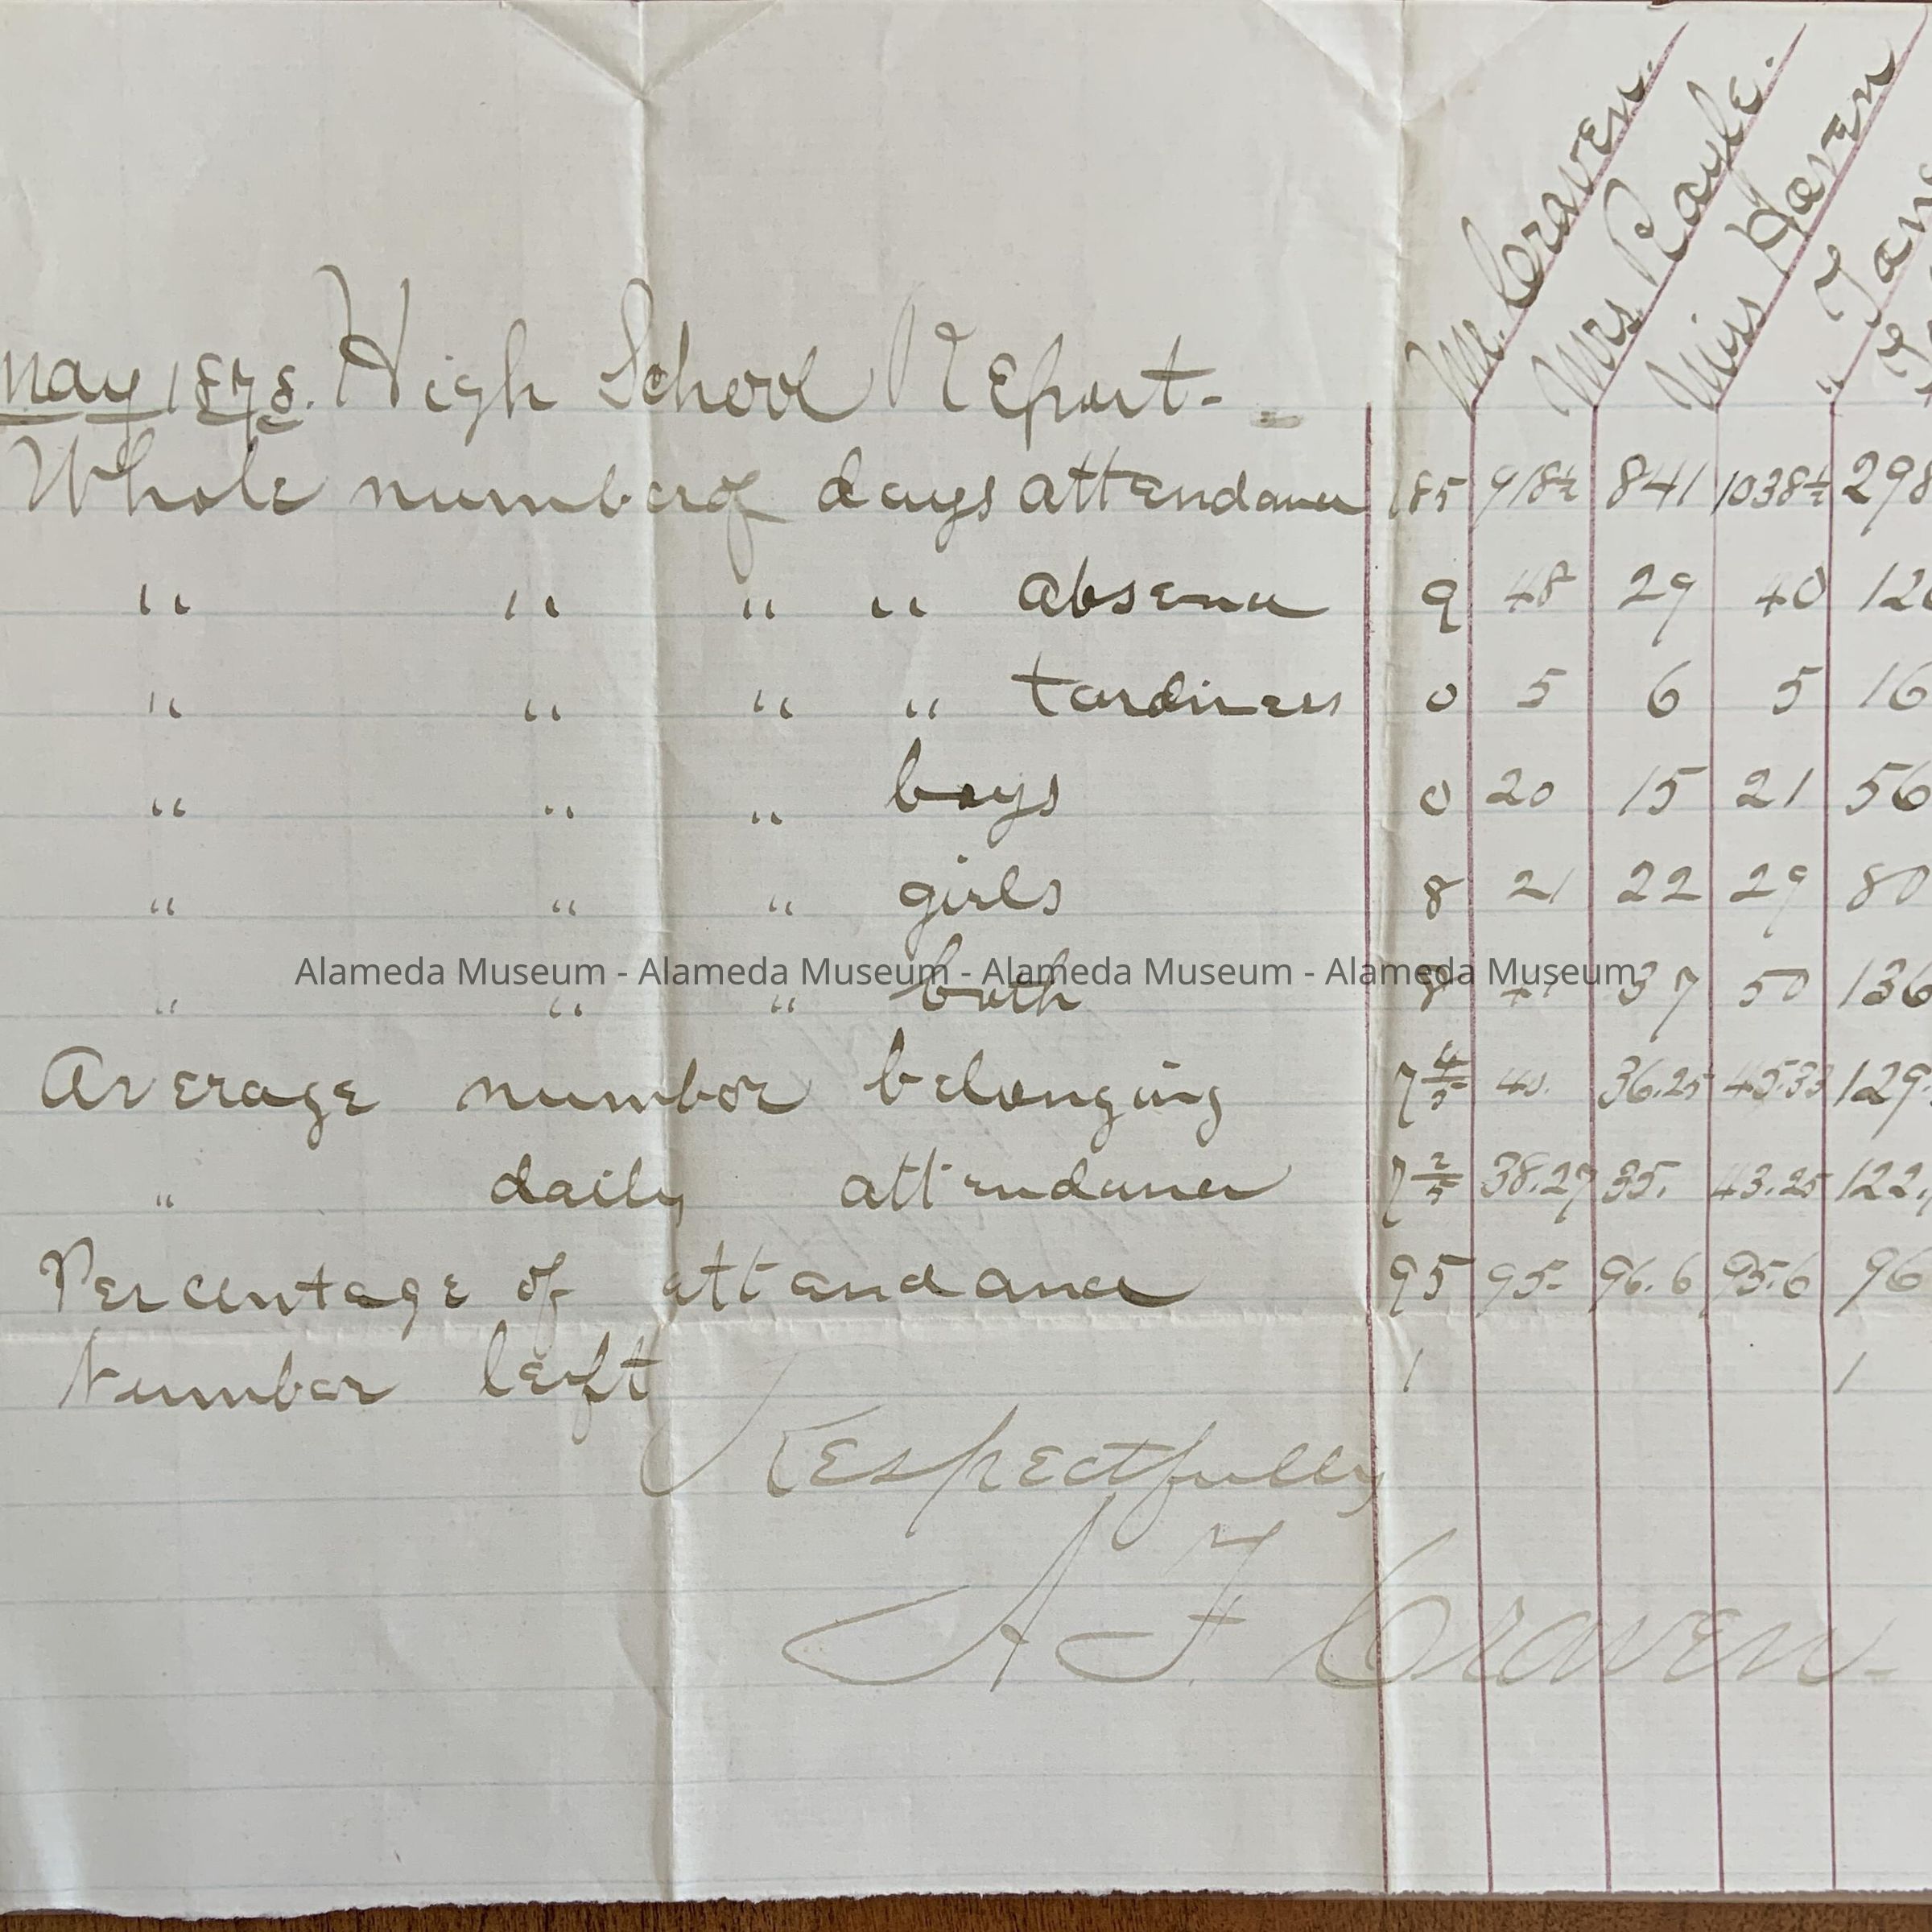 Mr. Craven.
Mrs. Rayle.
Miss Haven
May 1878. High School Report-
Whole number of days attendance 185 918½ 841 1038½ 298
" " " " absence 9 48 29 40 12
" " " " tardiness 0 5 6 5 16
" " " boys 0 20 15 21 56
" " " girls 8 21 22 29 80
Alameda Museum - Alameda Museum - Alameda Museum - Alameda Museum
" " " both 8 41 37 50 136
Average number belonging 7 4/5 40. 36.25 45.33 129.
" daily attendance 7 2/5 38.27 35. 43.25 122.
Percentage of attendance 95 95- 96.6 95.6 96
Number left 1 1
Respectfully
A F Craven-